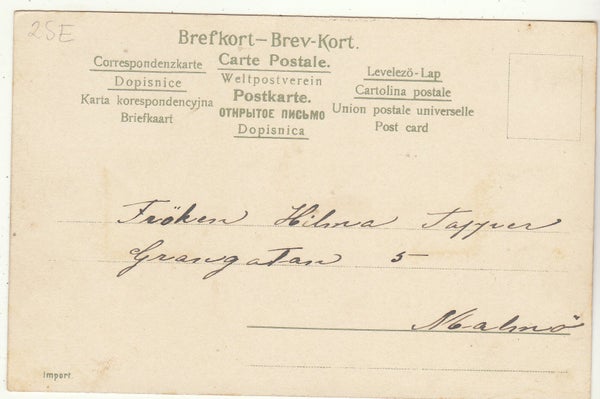 2SE
Brefkort—Brev-Kort.
Correspondenzkarte
Dopisnice
Karta korespondencyjna
Briefkaart
Carte Postale.
Weltpostverein
Postkarte.
ОТКРЫТОЕ ПИСЬМО
Dopisnica
Levelezö-Lap
Cartolina postale
Union postale universelle
Post card
Fröken Hilma Tapper
Grangatan 5
Malmö
Import.